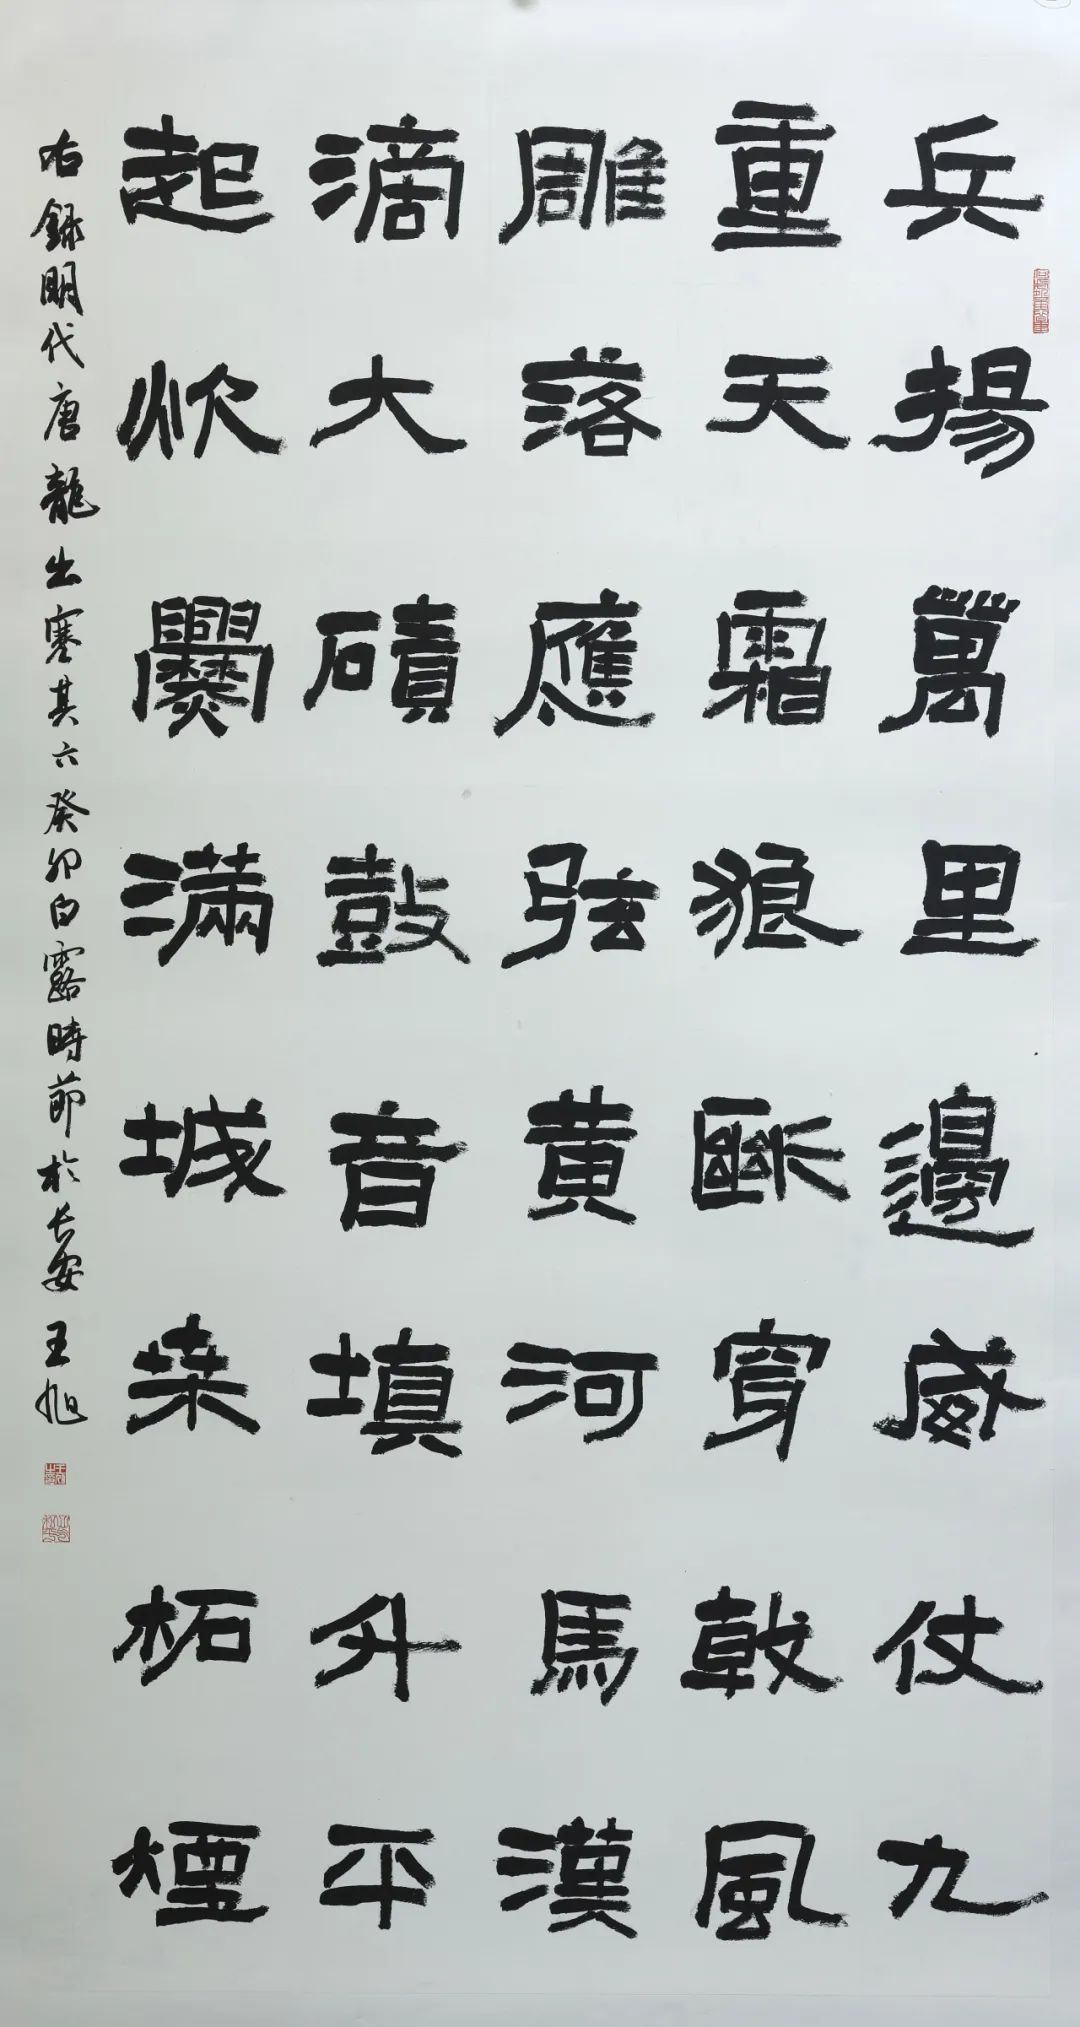 兵揚萬里邊威仗九
重天霜狼穿風
雕落應弦黃河馬漢
滴大磧鼓音填升平
起炊爨滿城桑柘煙
右錄明代唐龍出塞其六癸卯白露時節於長安王旭